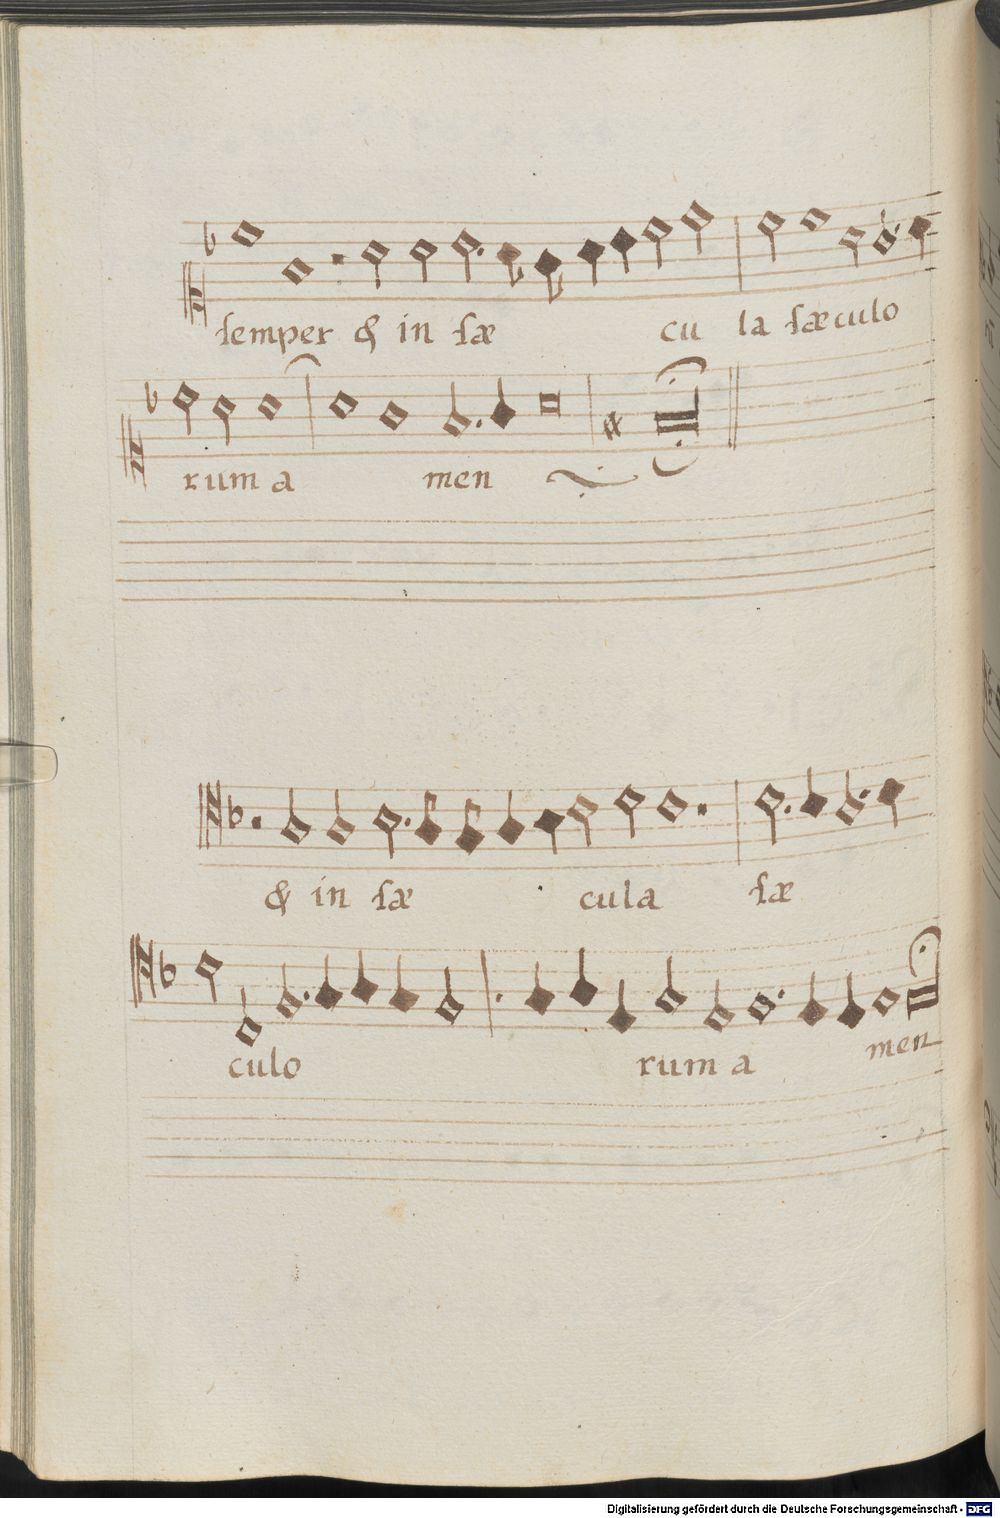 ſemper & in ſæ cu la ſæculo
rum a men
& in ſæ cula ſæ
culo rum a men
Digitalisierung gefördert durch die Deutsche Forschungsgemeinschaft - DFG